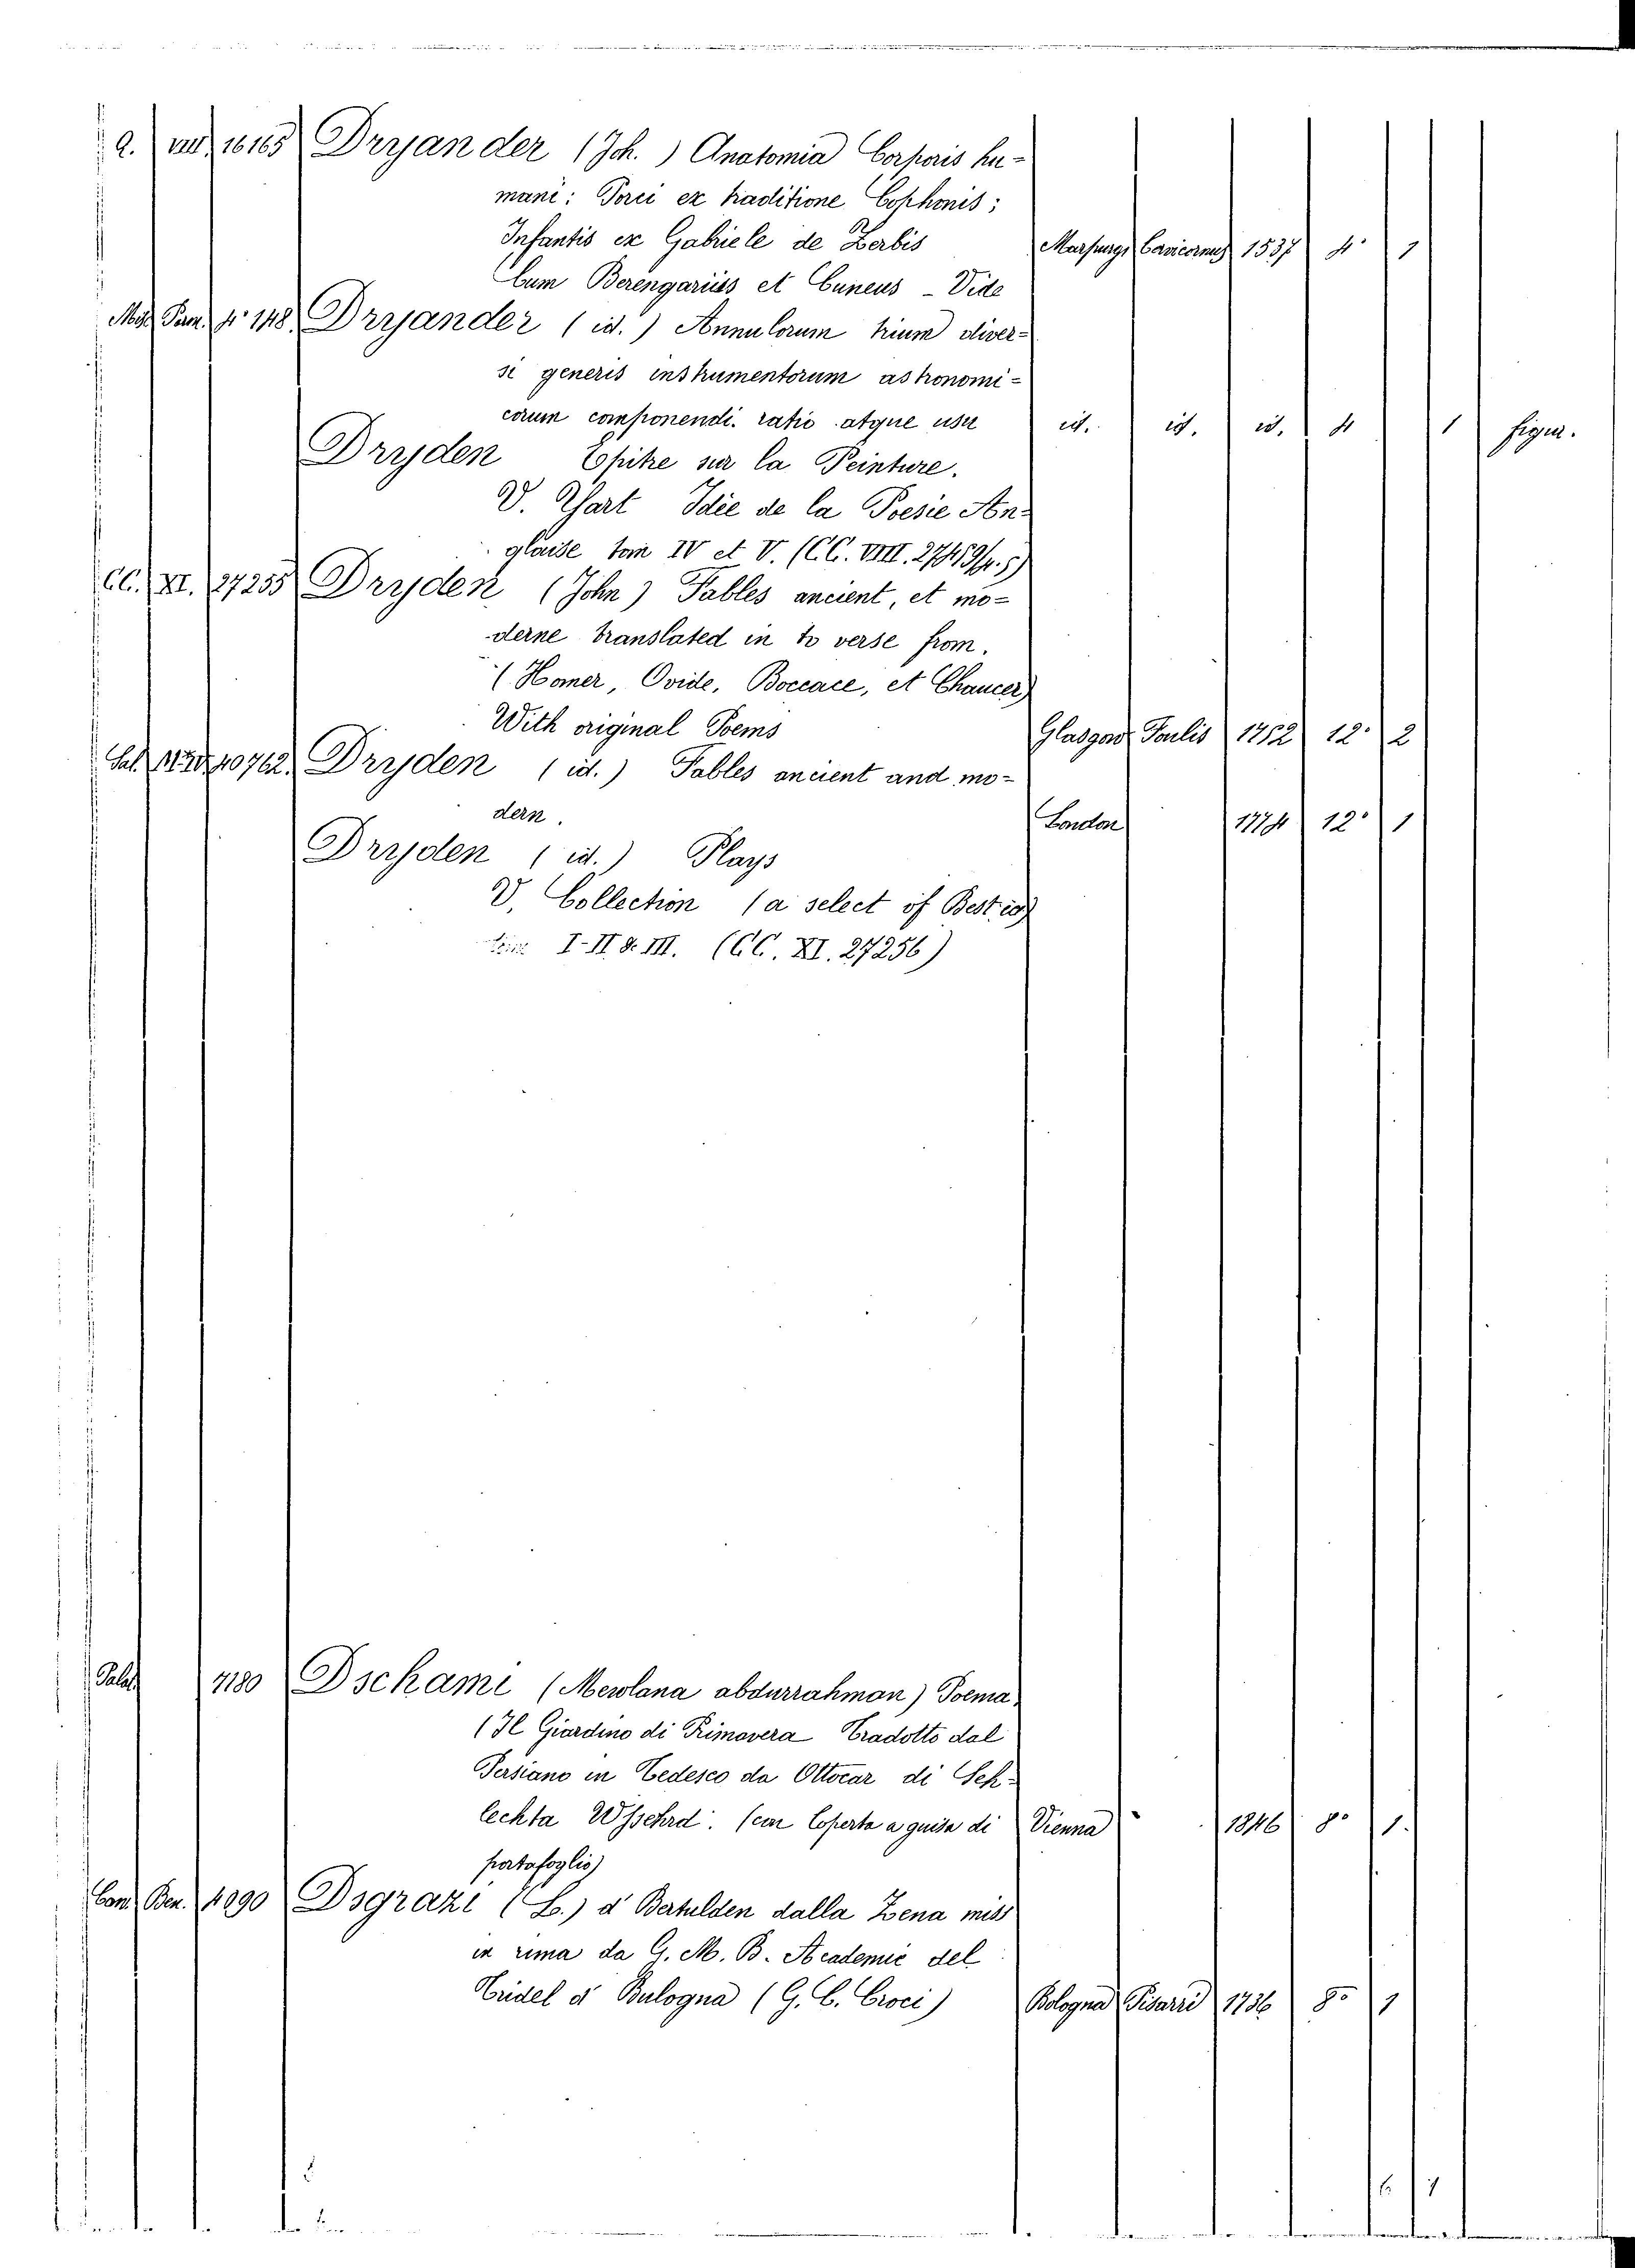 a. VIII 16165 Dryander (Joh.) Anatomia Corporis hu-
mani: Porci ex traditione Cophonis;
Infantis ex Gabriele de Zerbis Marpurgi 1537 4° 1
Cum Berengariüs et Cuneus - Vide
4° 148 Dryander (id.) Annulorum trium diver-
si generis instrumentorum astronomi-
corum componendi. ratio atque usu id. id. id. 4 1 figur.
Dryden Epitre sur la Peinture.
V. Yart Idée de la Poesie An-
glaise tom IV et V. (CC. VIII. 27459/4.5)
CC. XI. 27255 Dryden (John) Fables ancient, et mo-
derne translated in to verse from.
(Homer, Ovide, Boccace, et Chaucer)
With original Poems Glasgow Foulis 1752 12° 2
40762 Dryden (id.) Fables ancient and mo-
dern. London 1774 12° 1
Dryden (id.) Plays
V. Collection (a select of Best
tom. I-II & III. (CC. XI. 27256)
Palat 7180 Dschami (Mewlana abdurrahman) Poema
(Il Giardino di Primavera Tradotto dal
Persiano in Tedesco da Ottocar di Sch-
lechta Wssehrd. (con Coperta a guisa di Vienna 1846 8° 1.
portafoglio)
Com. Ben. 4090 Dsgrazi (L.) d' Bertulden dalla Zena miss
in rima da G. M. B. Academic del
Tridel d' Bulogna (G. C. Croci) Bologna Pisarri 1736 8° 1
6 1